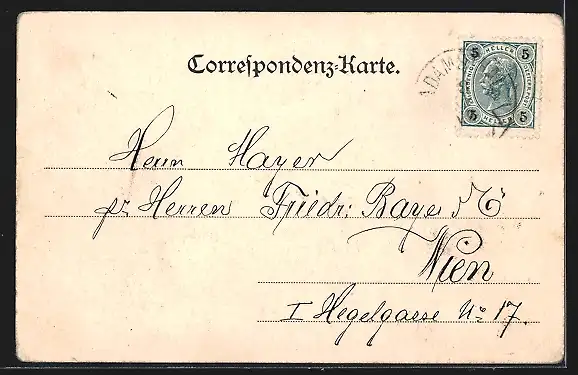 Correspondenz-Karte.
ADAM
5 HELLER 5
5 HELLER 5
Herrn Hayer
pr Herren Friedr: Bayer & Cº
Wien
I Hegelgasse Nº 17.